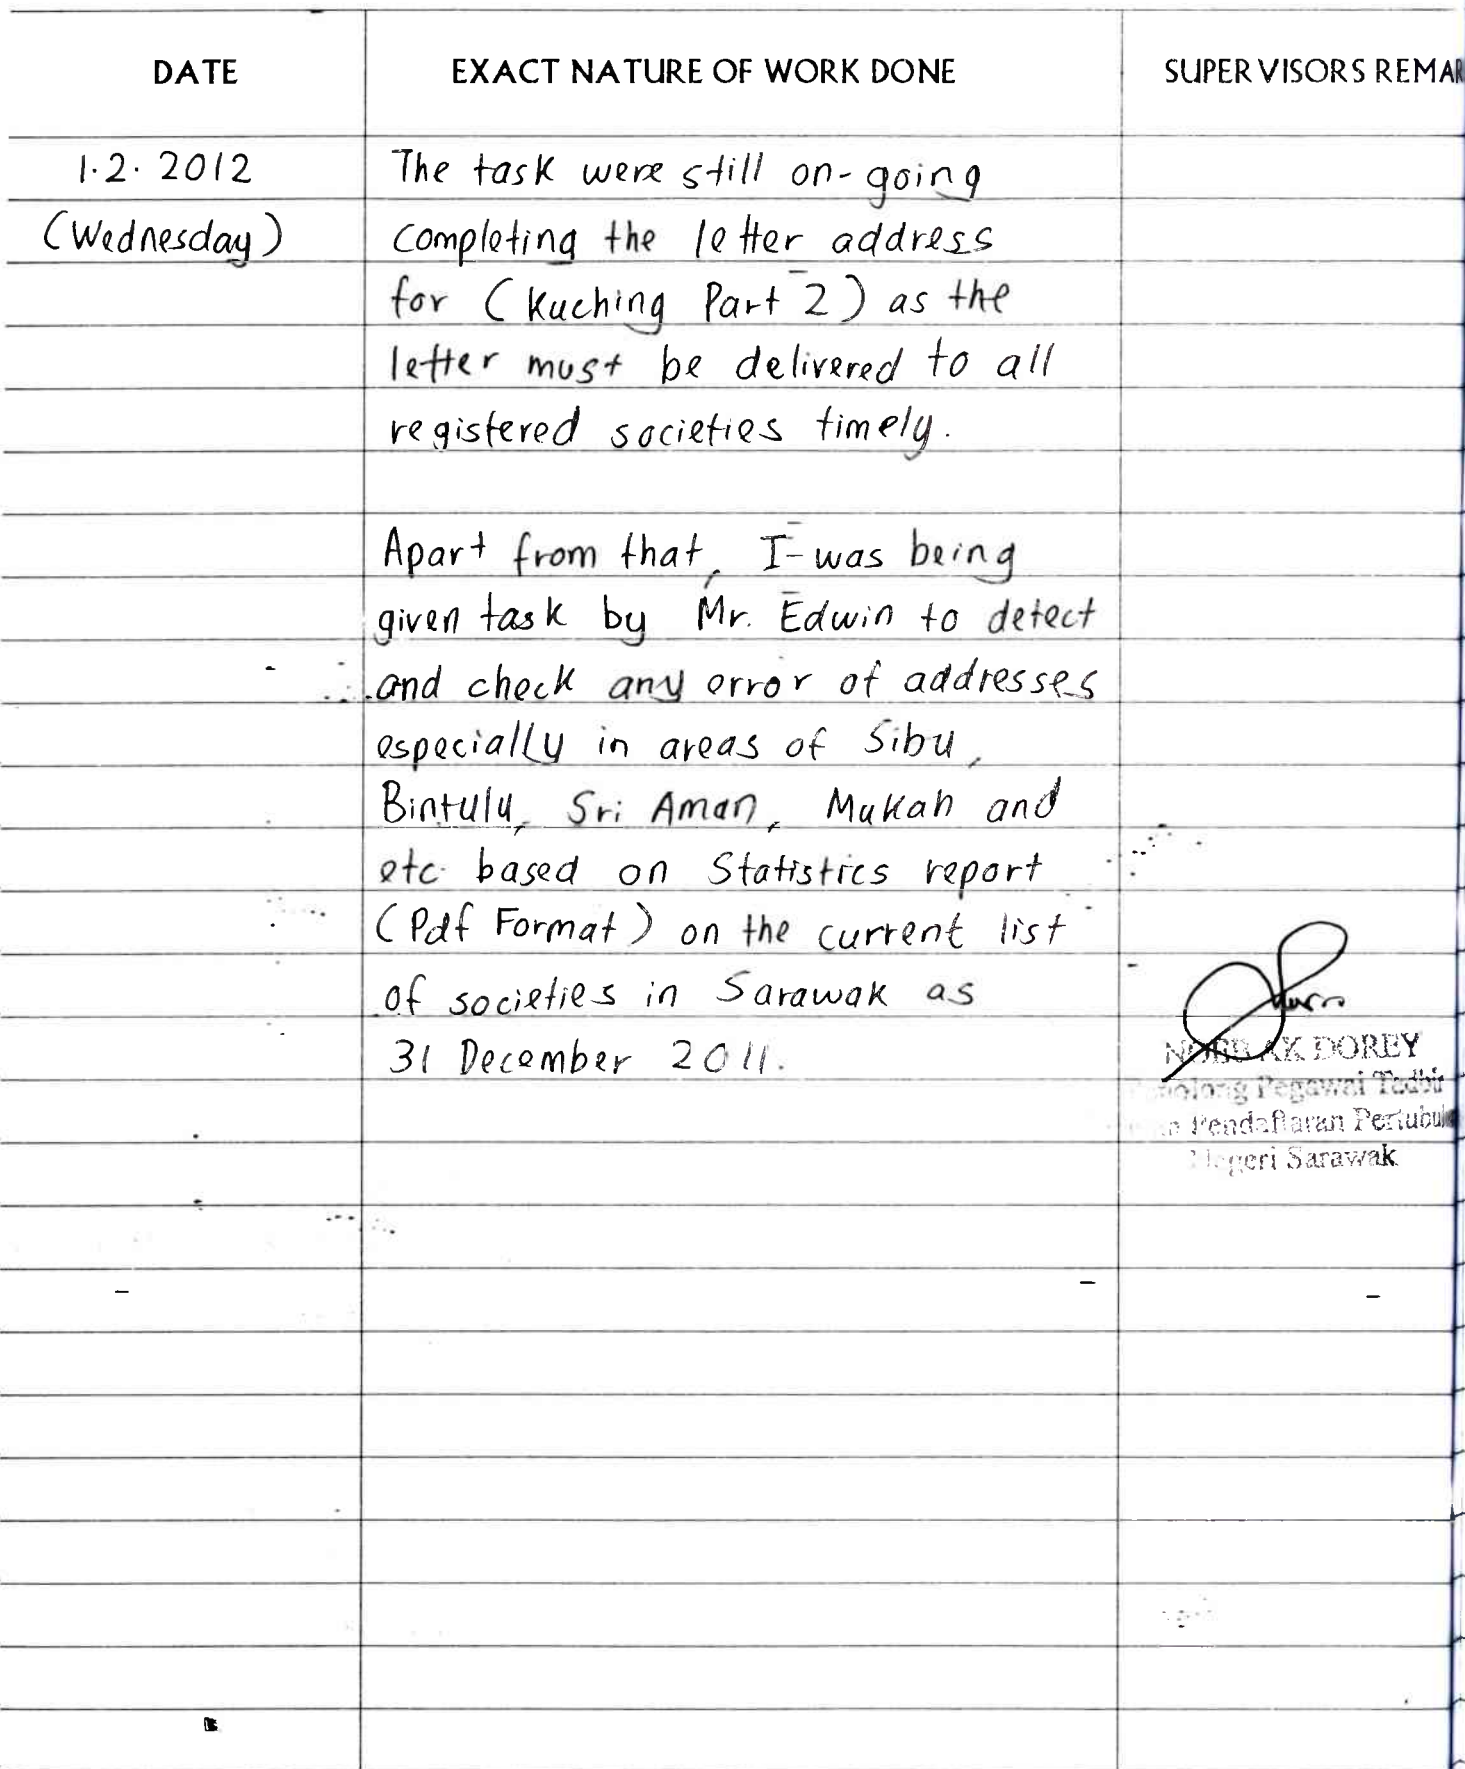 DATE EXACT NATURE OF WORK DONE SUPERVISORS REMAR
1.2.2012 The task were still on-going
(Wednesday) completing the letter address
for (Kuching Part 2) as the
letter must be delivered to all
registered societies timely.
Apart from that, I was being
given task by Mr. Edwin to detect
and check any error of addresses
especially in areas of Sibu,
Bintulu, Sri Aman, Mukah and
etc. based on Statistics report
(Pdf Format) on the current list
of societies in Sarawak as
31 December 2011.
AK DOREY
Pegawai Tadbir
Pendaftaran Pertubu
Negeri Sarawak